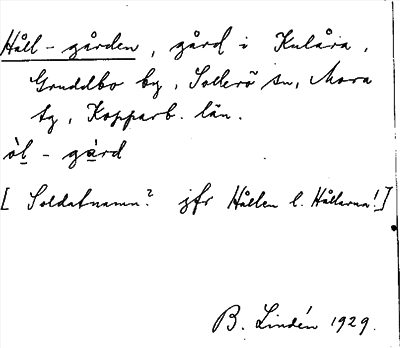 Håll-gården, gård i Kulåra,
Gruddbo by, Sollerö sn, Mora
tg, Kopparb. län.
òl - gàrd
[ Soldatnamn? jfr Hållen l. Hållarna! ]
B. Lindén 1929.